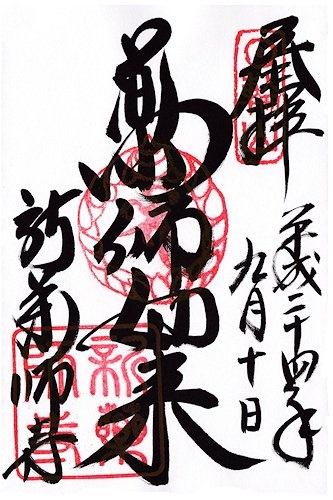 奉拝
平成二十四年
九月十日
薬師如来
新薬師寺
新薬
師寺